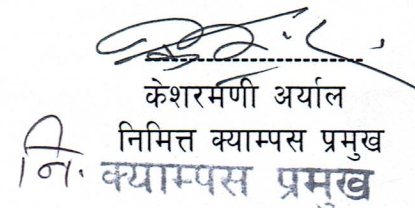 केशरमणी अर्याल
निमित्त क्याम्पस प्रमुख
नि. क्याम्पस प्रमुख